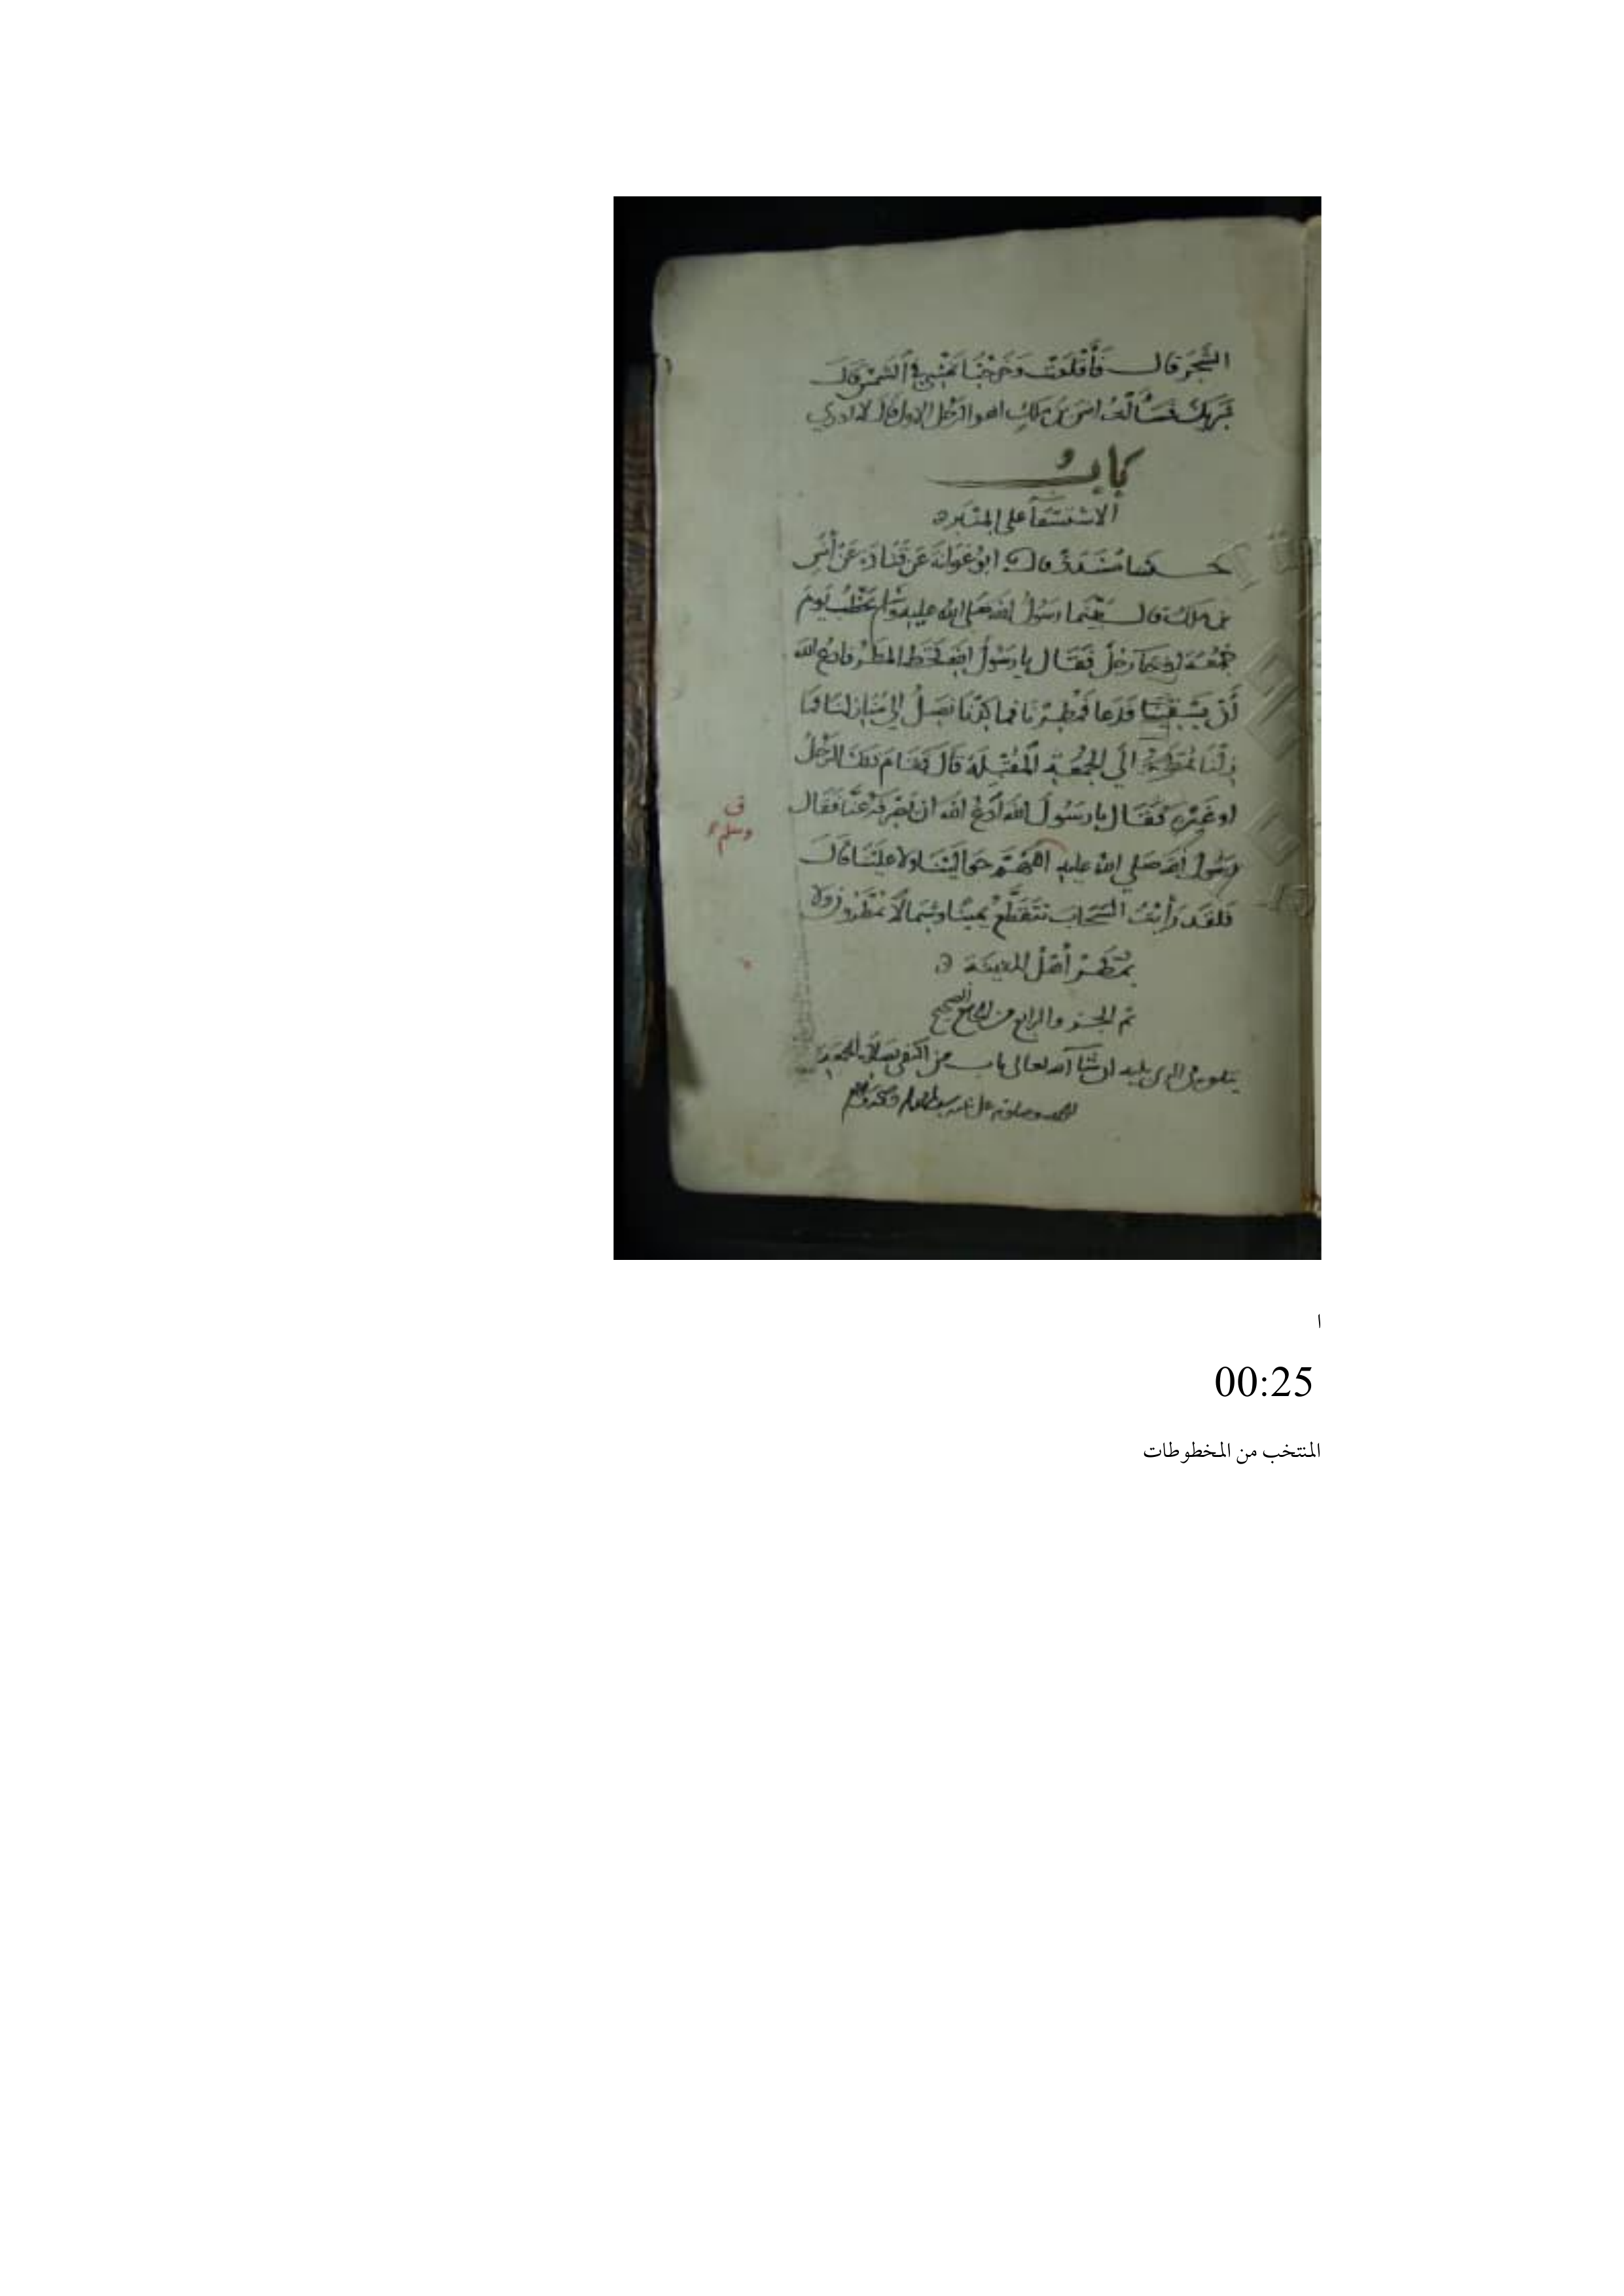 الشجر قال فأقلعت وخرجنا نمشي في الشمس قال
شريك فسألت انس بن ملك اهو الرجل الاول قال لا ادري
باب
الاستسقا على المنبر
حدثنا مسدد قال ابو عوانة عن قتادة عن أنس
بن ملك قال بينما رسول الله صلى الله عليه وسلم يخطب يوم
جمعة اذ جا رجل فقال يا رسول الله قحط المطر فادع الله
أن يسقينا فدعا فمطرنا فما كدنا نصل الى منازلنا فما
زلنا نمطر الى الجمعة المقبلة قال فقام ذلك الرجل
او غيره فقال يا رسول الله ادع الله ان يصرفه عنا فقال
رسول الله صلى الله عليه اللهم حوالينا ولا علينا قال
وسلم
فلقد رأيت السحاب يتقطع يمينا وشمالا يمطرون ولا
يمطر أهل المدينة
تم الجزو الرابع من الجامع الصحيح
يتلوه في الذي يليه ان شا الله تعالى باب من اكتفى بصلاة الجمعة
ا
00:25
المنتخب من المخطوطات